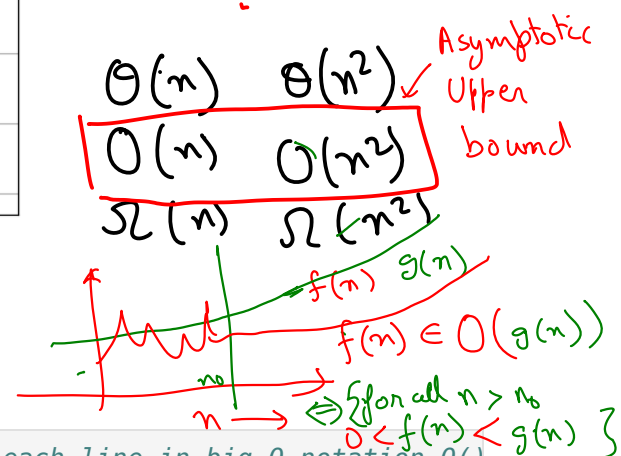 Θ(n) Θ(n²)
Asymptotic
Upper
bound
O(n) O(n²)
Ω(n) Ω(n²)
f(n) g(n)
f(n) ∈ O(g(n))
n₀
n → ⇔ {for all n > n₀
0 < f(n) < g(n) }
each line in big O notation O()